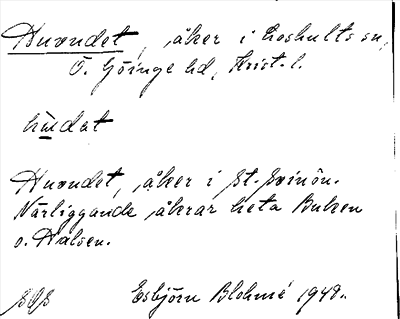 Huvudet, åker i Loshults sn,
Ö. Göinge hd, Krist. l.
hu̅dat
Huvudet, åker i St. Svinön.
Närliggande åkrar heta Buken
o. Halsen.
Esbjörn Blohmé 1948.